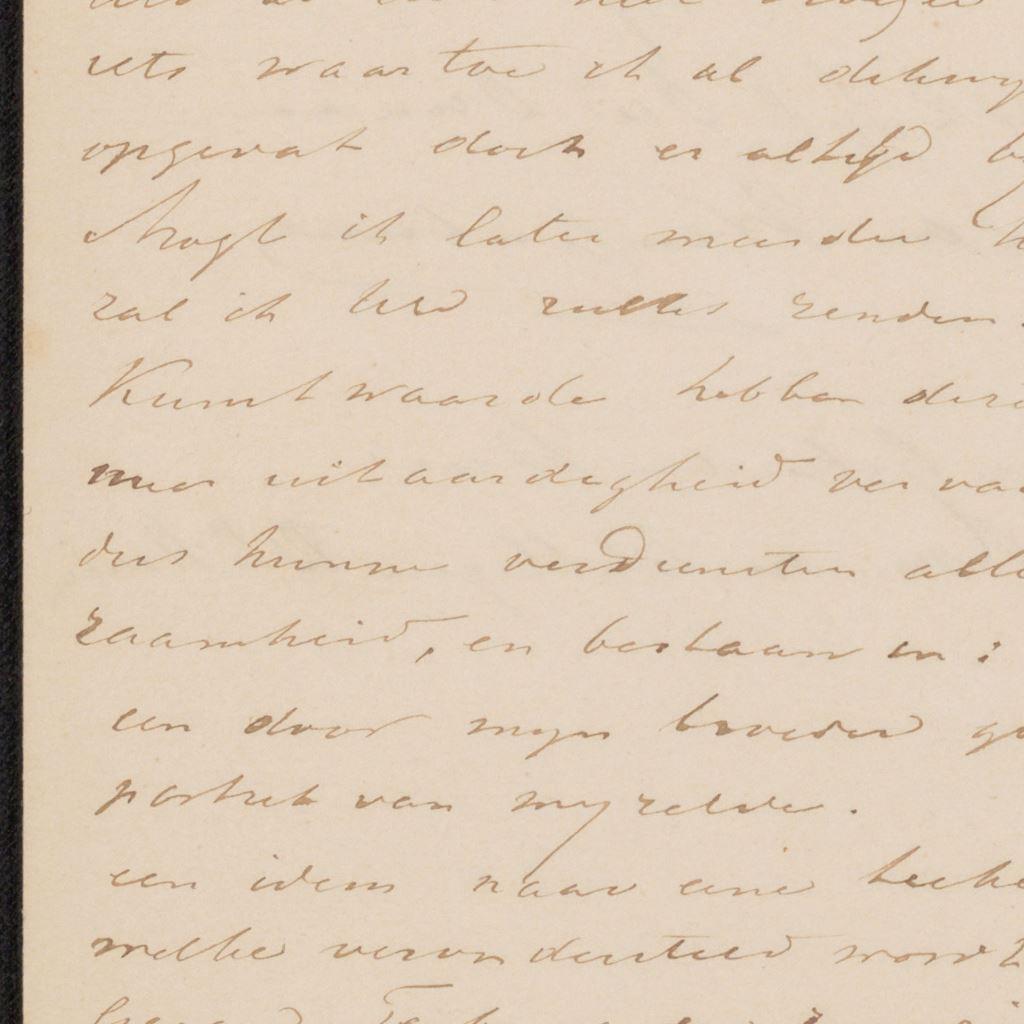 iets waartoe ik al dikwy
opgevat doch er altijd
Mogt ik later meerdere
zal ik UEd zulks zenden.
Kunstwaarde hebben deze
meer uit aardigheid ver va
dus hunne verdiensten alle
zaamheid, en bestaan in:
een door myn broeder ge
portret van my zelve.
een idem naar eene teeke
welke verondersteld wordt